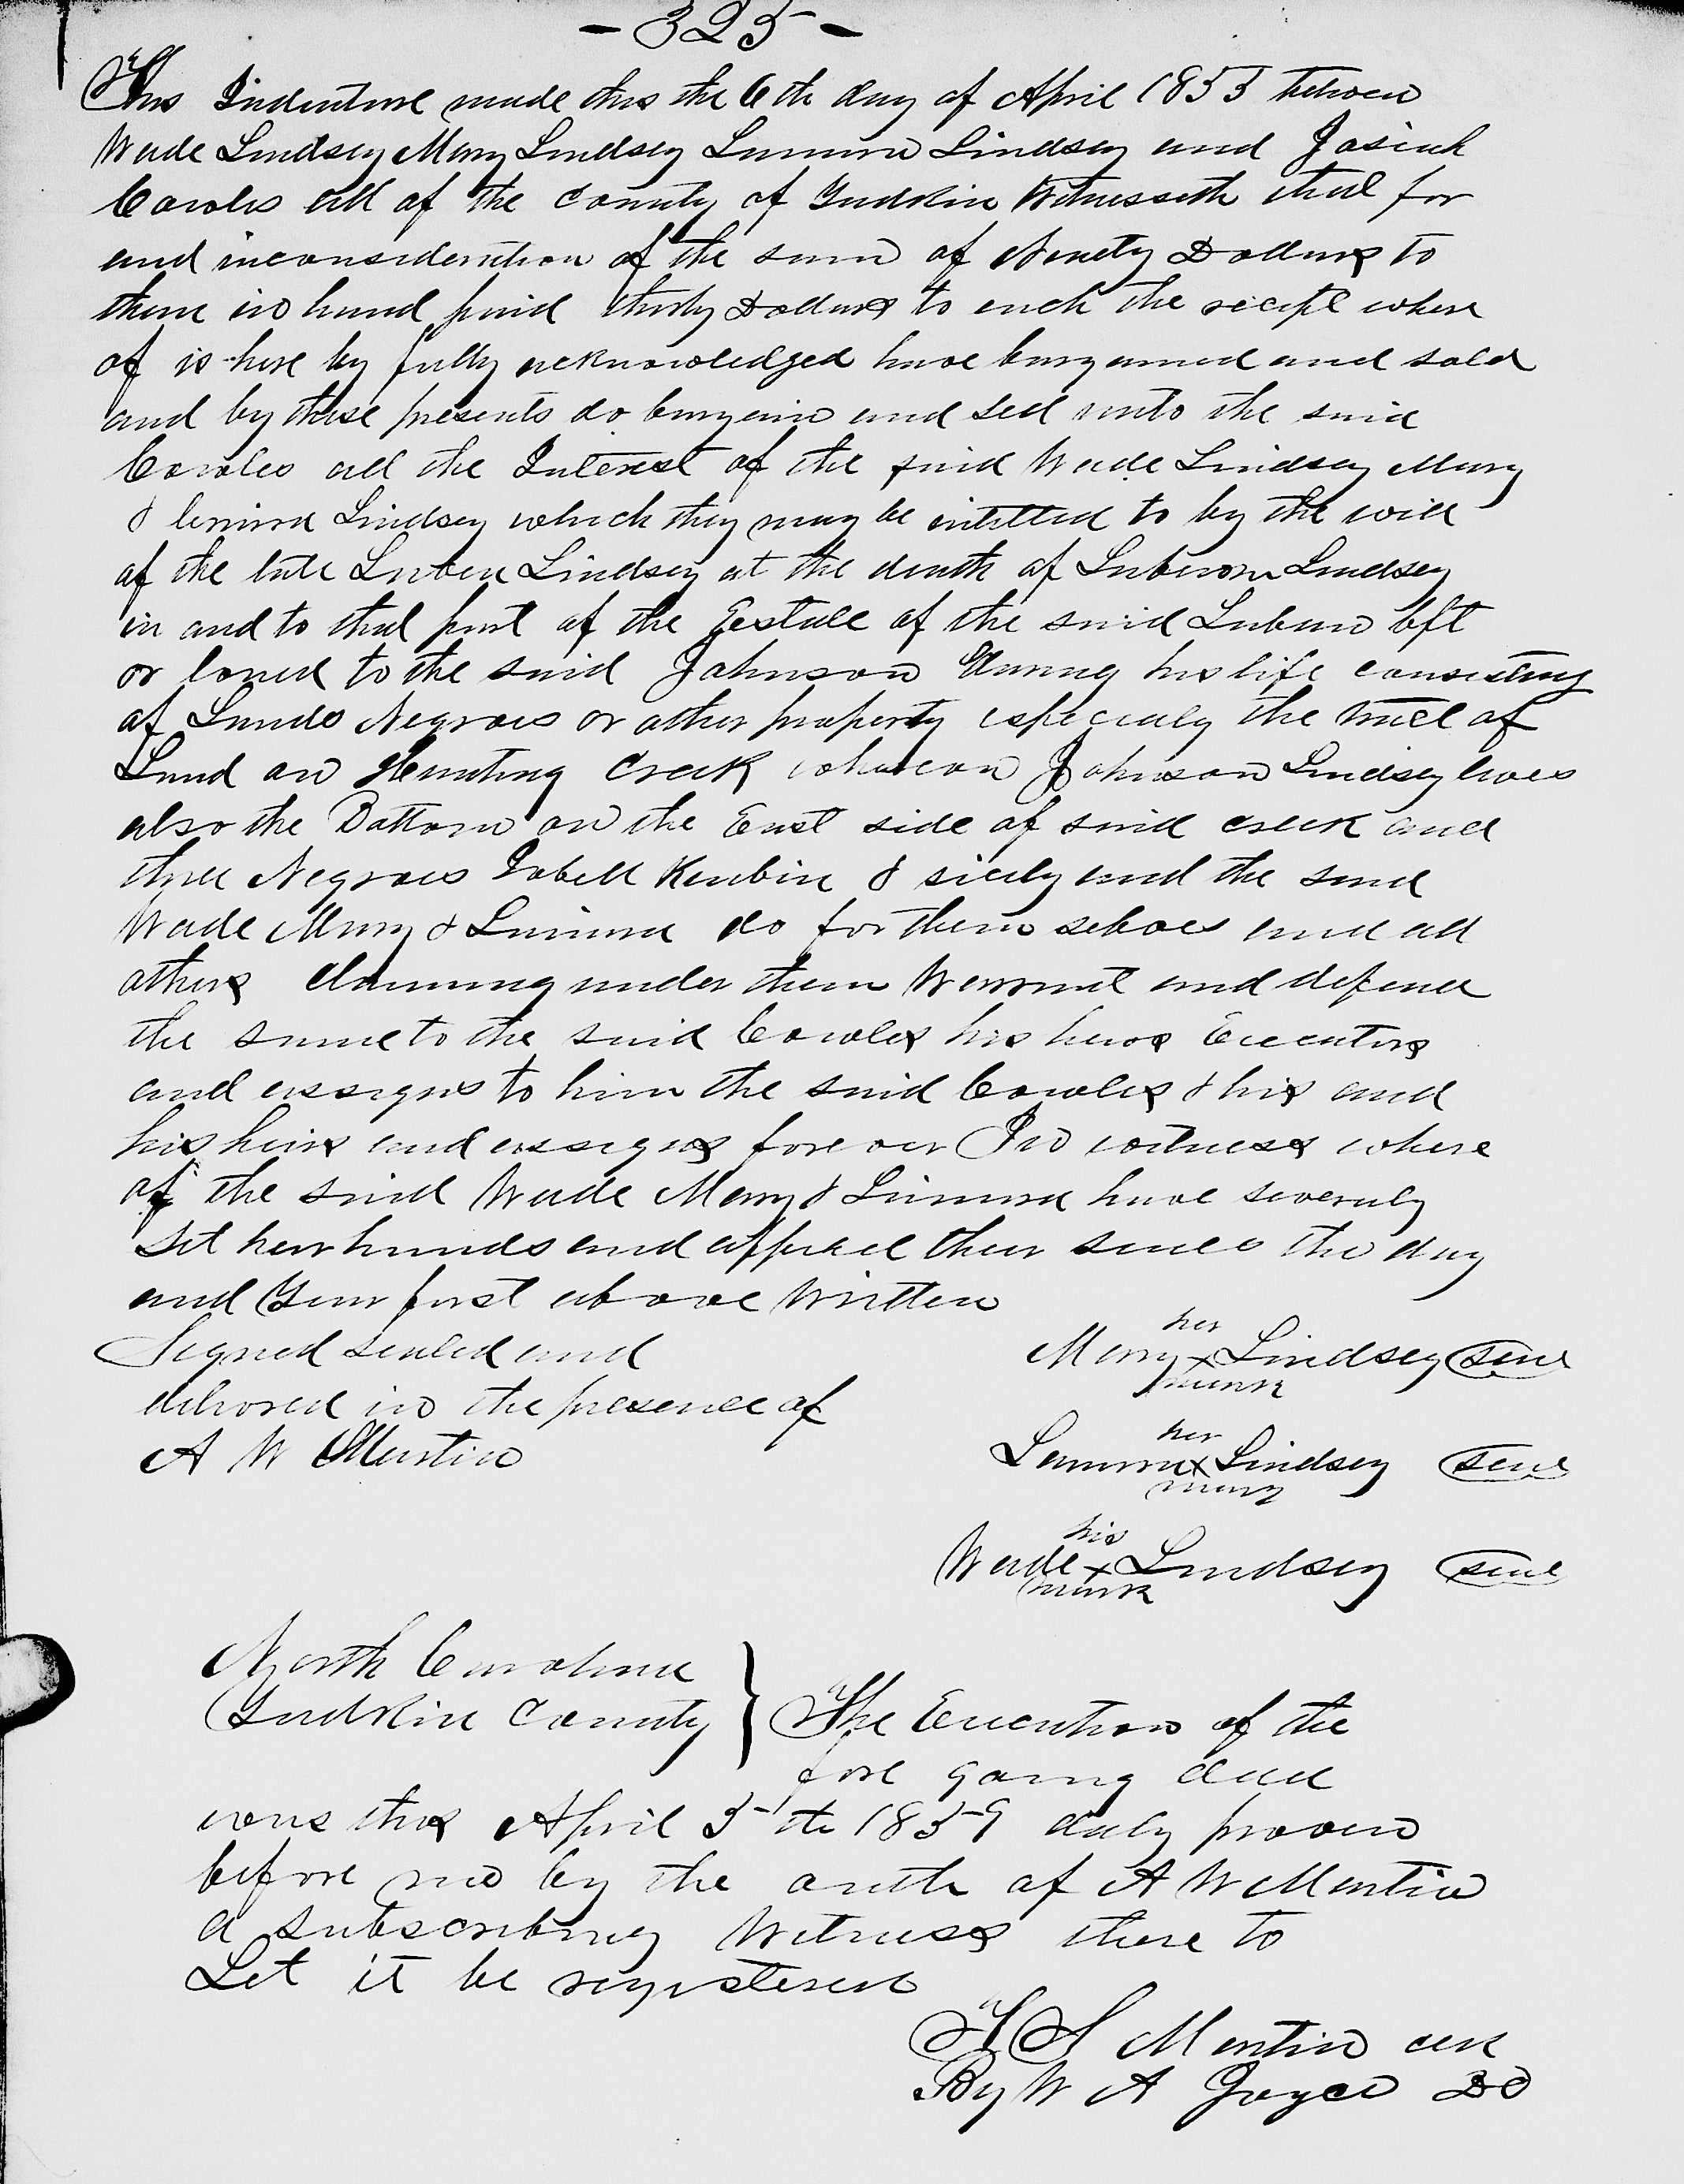 - 325 -
This Indenture made this the 6th day of April 1853 between
Wade Lindsey Mary Lindsey Lurina Lindsey and Josiah
Cowles all of the County of Yadkin Witnesseth that for
and inconsideration of the sum of Ninety Dollars to
them in hand paid thirty Dollars to each the recipt where
of is here by fully acknowledged have bargained and sold
and by these presents do bargain and sell unto the said
Cowles all the Interest of the said Wade Lindsey Mary
& Lindsey which they may be intitled to by the will
of the late Laban Lindsey at the death of Lindsey
in and to that part of the Estate of the said Laban left
or loned to the said Johnson During his life consisting
of Lands Negroes or other property especialy the tract of
Land on Hunting Creek whareon Johnson Lindsey lives
also the Bottom on the East side of said creek and
three Negroes Isbell Reubin & sicily and the said
Wade Mary & do for them selves and all
others claiming under them Warrant and defend
the same to the said Cowles his heirs Executors
and assigns to him the said Cowles & his and
his heirs and assigns forever In witness where
of the said Wade Mary & have severaly
set hear hands and affixed their seals the day
and Year first above Written
Signed sealed and
delivered in the presence of
A W Martin
her
Mary x Lindsey seal
mark
her
x Lindsey seal
mark
his
Wade x Lindsey seal
mark
North Carolina
Yadkin County } The Execution of the
fore going deed
was this April 5th 1859 duly proven
before me by the oath of A W Martin
a subscribing Witness there to
Let it be registered
T S Martin clk
By W A Joyce DC